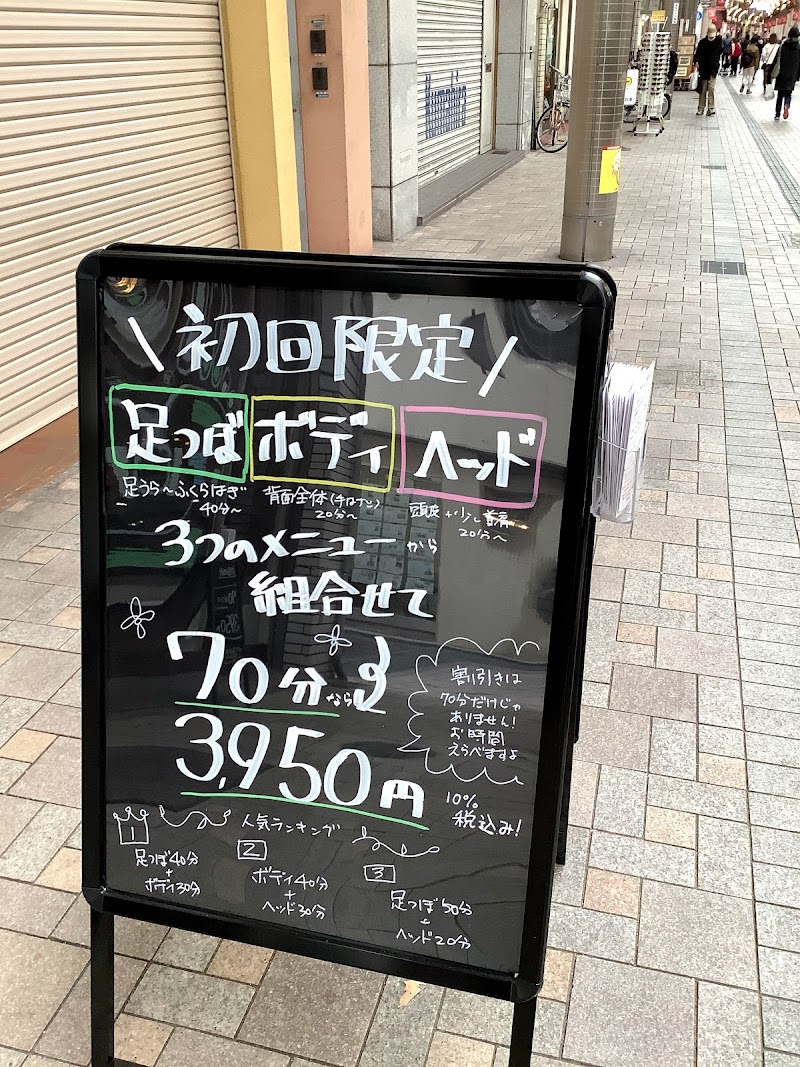 \初回限定/
足つぼ ボディ ヘッド
足うら～ふくらはぎ
40分～
背面全体(手はナシ)
20分～
頭皮+少し首肩
20分～
3つのメニューから
組合せて
70分なら
3,950円
割引きは
70分だけじゃ
ありません!
お時間
えらべますよ
10%
税込み!
人気ランキング
1
足つぼ40分
+
ボディ30分
2
ボディ40分
+
ヘッド30分
3
足つぼ50分
+
ヘッド20分